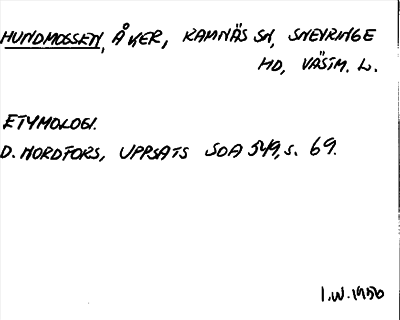 HUNDMOSSEN, ÅKER, RAMNÄS SN, SNEVRINGE
HD, VÄSTM. L.
ETYMOLOGI.
D. NORDFORS, UPPSATS SOA 549, S. 69.
I.W. 1950